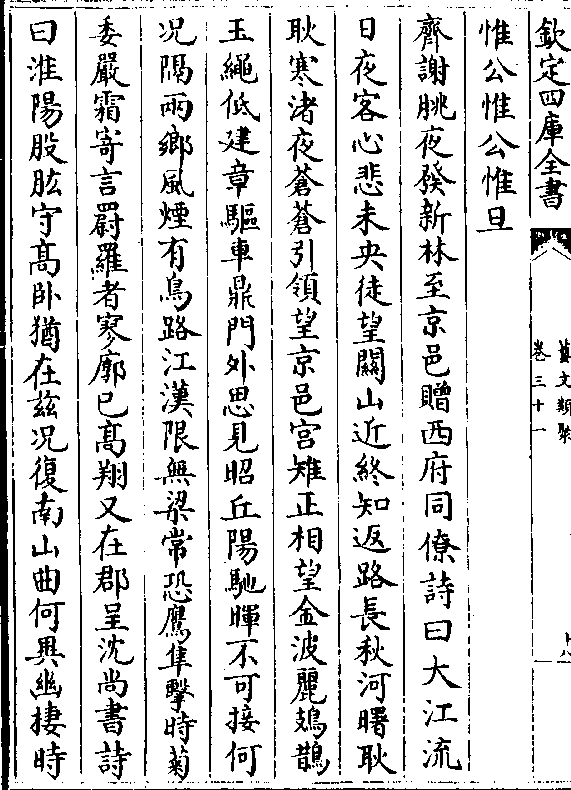 欽定四庫全書
藝文類聚
卷三十一
十八
惟公惟公惟旦
齊謝朓夜發新林至京邑贈西府同僚詩曰大江流
日夜客心悲未央徒望關山近終知返路長秋河曙耿
耿寒渚夜蒼蒼引領望京邑宮雉正相望金波麗鳷鵲
玉繩低建章驅車鼎門外思見昭丘陽馳暉不可接何
况隔兩鄉風煙有鳥路江漢限無梁常恐鷹隼擊時菊
委嚴霜寄言罻羅者寥廓已高翔又在郡呈沈尚書詩
曰淮陽股肱守高卧猶在兹况復南山曲何異幽棲時